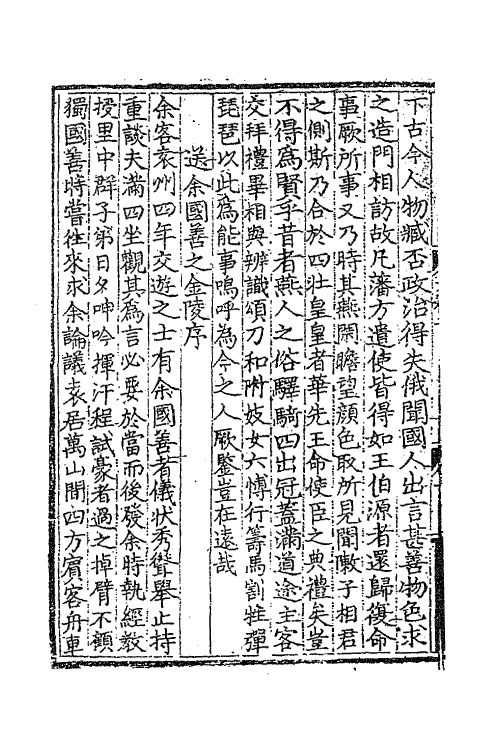 下古今人物臧否政治得失俄聞國人出言甚善物色求
之造門相訪故凡藩方遣使皆得如王伯源者還歸復命
事厥所事又乃時其燕閑瞻望顔色取所見聞敶子相君
之側斯乃合於四壯皇皇者華先王命使臣之典禮矣豈
不得爲賢乎昔者燕人之俗驛騎四出冠蓋滿道途主客
交拜禮畢相與辨識頌刀和附妓女六愽行籌馬割牲彈
琵琶以此爲能事嗚呼為今之人厥鑒豈在遠哉
送余國善之金陵序
余客袁州四年交遊之士有余國善者儀状秀聳舉止持
重談夫滿四坐觀其爲言必要於當而後發余時執經教
授里中群子弟日夕呻吟揮汗程試豪者過之掉臂不顧
獨國善時嘗徃來求余論議袁居萬山間四方賓客舟車